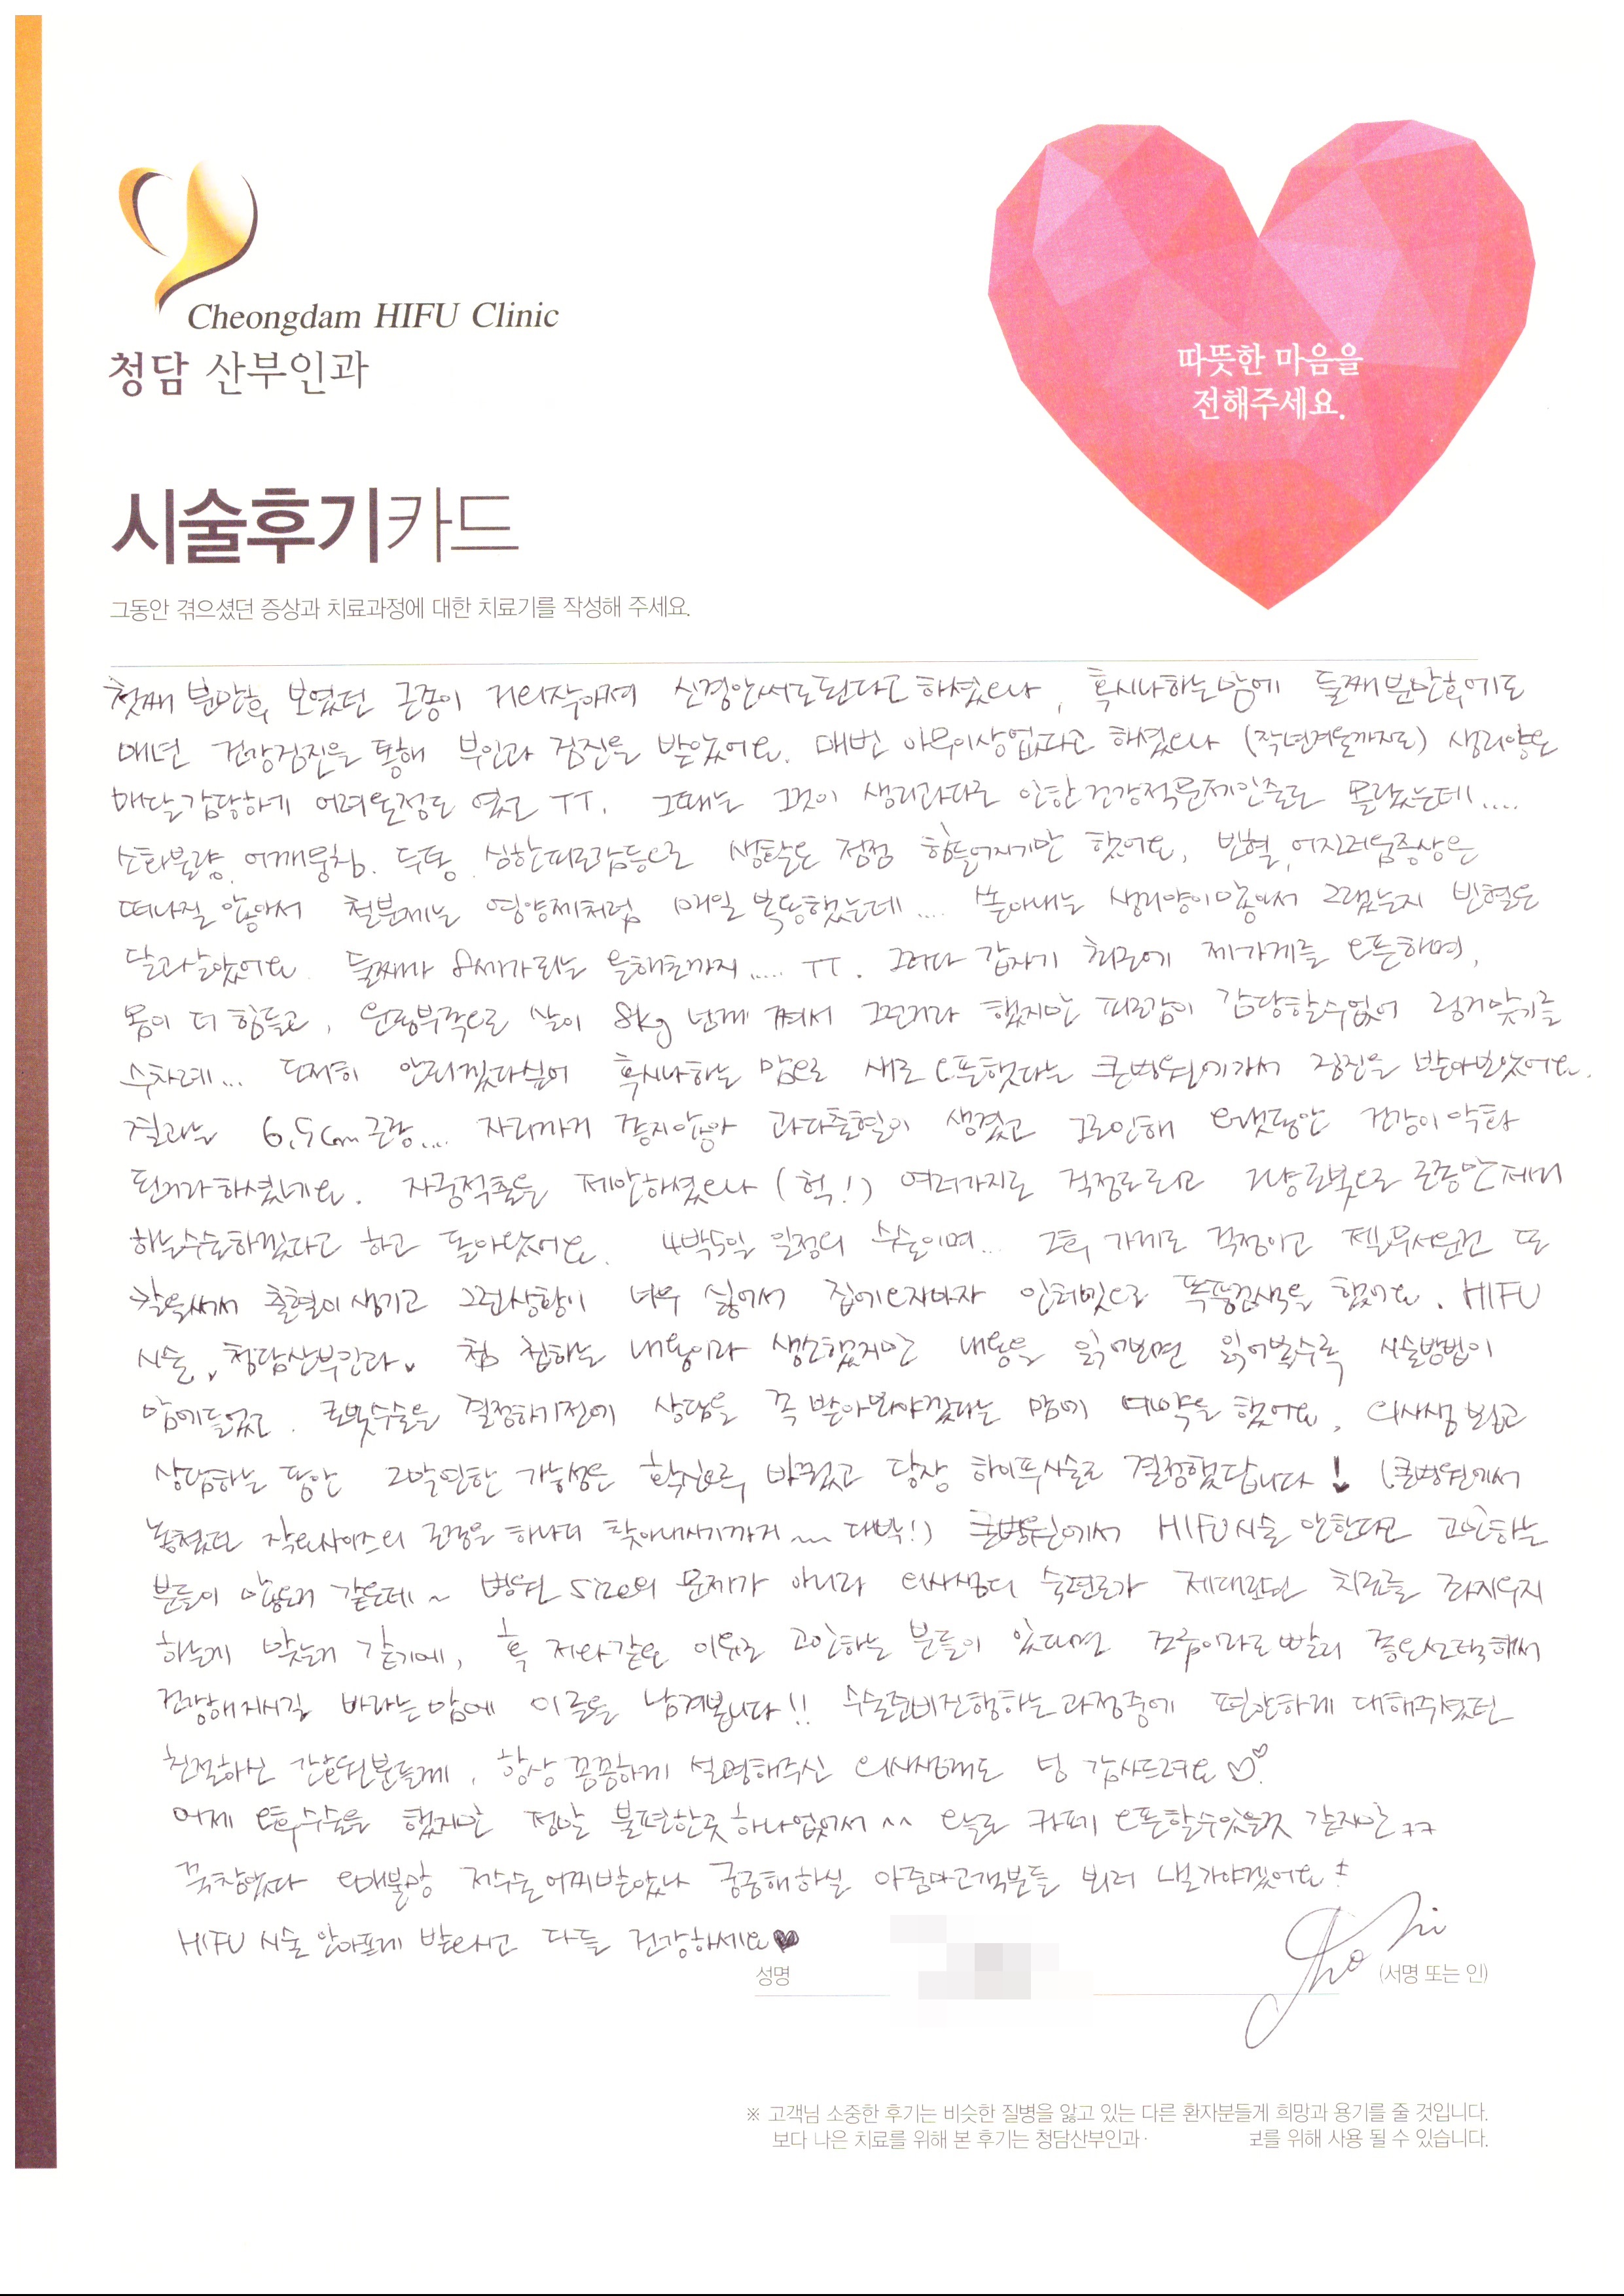 Cheongdam HIFU Clinic
청담 산부인과
따뜻한 마음을
전해주세요.
시술후기카드
그동안 겪으셨던 증상과 치료과정에 대한 치료기를 작성해 주세요.
첫째 분만후 보였던 근종이 거의작아져 신경안써도된다고 하셨으나, 혹시나하는맘에 둘째분만후에도
매년 건강검진을 통해 부인과 검진을 받았어요. 매번 아무이상없다고 하셨으나 (작년겨울까지도) 생리양은
매달감당하게 어려울정도 였고 TT. 그때는 그것이 생리과다로 인한건강적문제인줄도 몰랐는데....
소화불량, 어깨뭉침. 두통, 심한피로감등으로 생활은 점점 힘들어지기만 했어요, 빈혈, 어지러움증상은
떠나질 않아서 철분제는 영양제처럼 매일 복용했는데.... 쏟아내는 생리양이많아서 그랬는지 빈혈은
달고살았어요. 둘째가 8세가되는 올해초까지..... TT. 그러다 갑자기 최근에 제가게를 오픈하며,
몸이 더 힘들고, 운동부족으로 살이 8kg 넘게 쪄서 그런거라 했지만 피로감이 감당할수없어 링거맞기를
수차례... 도저히 안되겠다싶어 혹시나하는 맘으로 새로 오픈했다는 큰병원에가서 검진을 받아보았어요.
결과는 6.5cm근종... 자리까지 좋지않아 과다출혈이 생겼고 그로인해 오랫동안 건강이악화
된거라하셨네요. 자궁적출을 제안하셨으나 (헉!) 여러가지로 걱정되고 그냥로봇으로 근종만제거
하는수술하겠다고 하고 돌아왔어요. 4박5일 일정의 수술이며... 그후 가게로 걱정이고 젤무서운건 또
칼을써서 출혈이생기고 그런상황이 너무 싫어서 집에오자마자 인터넷으로 폭풍검색을 했어요. HIFU
시술, 청담산부인과. 첨 접하는 내용이라 생소했지만 내용을 읽어보면 읽어볼수록 시술방법이
맘에들었고. 로봇수술을 결정하기전에 상담을 꼭받아봐야겠다는 맘에 예약을 했어요. 의사쌤 뵙고
상담하는 동안 그막연한 가능성은 확신으로 바꼈고 당장 하이푸시술로 결정했답니다! (큰병원에서
놓쳤던 작은사이즈의 근종을 하나더 찾아내시기까지~~ 대박!) 큰병원에서 HIFU시술 안한다고 고민하는
분들이 많은거 같은데~ 병원 Size의 문제가 아니라 의사쌤의 숙련도가 제대로된 치료를 좌지우지
하는게 맞는거 같기에, 혹 저와같은 이유로 고민하는 분들이 있다면 조금이라도빨리 좋은선택해서
건강해지시길 바라는맘에 이글을 남겨봅니다!! 수술준비진행하는과정중에 편안하게 대해주셨던
친절하신 간호원분들께, 항상 꼼꼼하게 설명해주신 의사쌤께도 넘 감사드려요♡♡
어제 오후수술을 했지만 정말 불편한곳하나없어서 ^^ 오늘도 카페 오픈할수있을것 같지만 ㅋㅋ
꾹참았다 오매불망 저수술어찌받았나 궁금해하실 아줌마고객분들 뵈러 낼가야겠어요!
HIFU 시술 안아프게 받으시고 다들 건강하세요♥
성명
(서명 또는 인)
※ 고객님 소중한 후기는 비슷한 질병을 앓고 있는 다른 환자분들게 희망과 용기를 줄 것입니다.
보다 나은 치료를 위해 본 후기는 청담산부인과· 보를 위해 사용 될 수 있습니다.